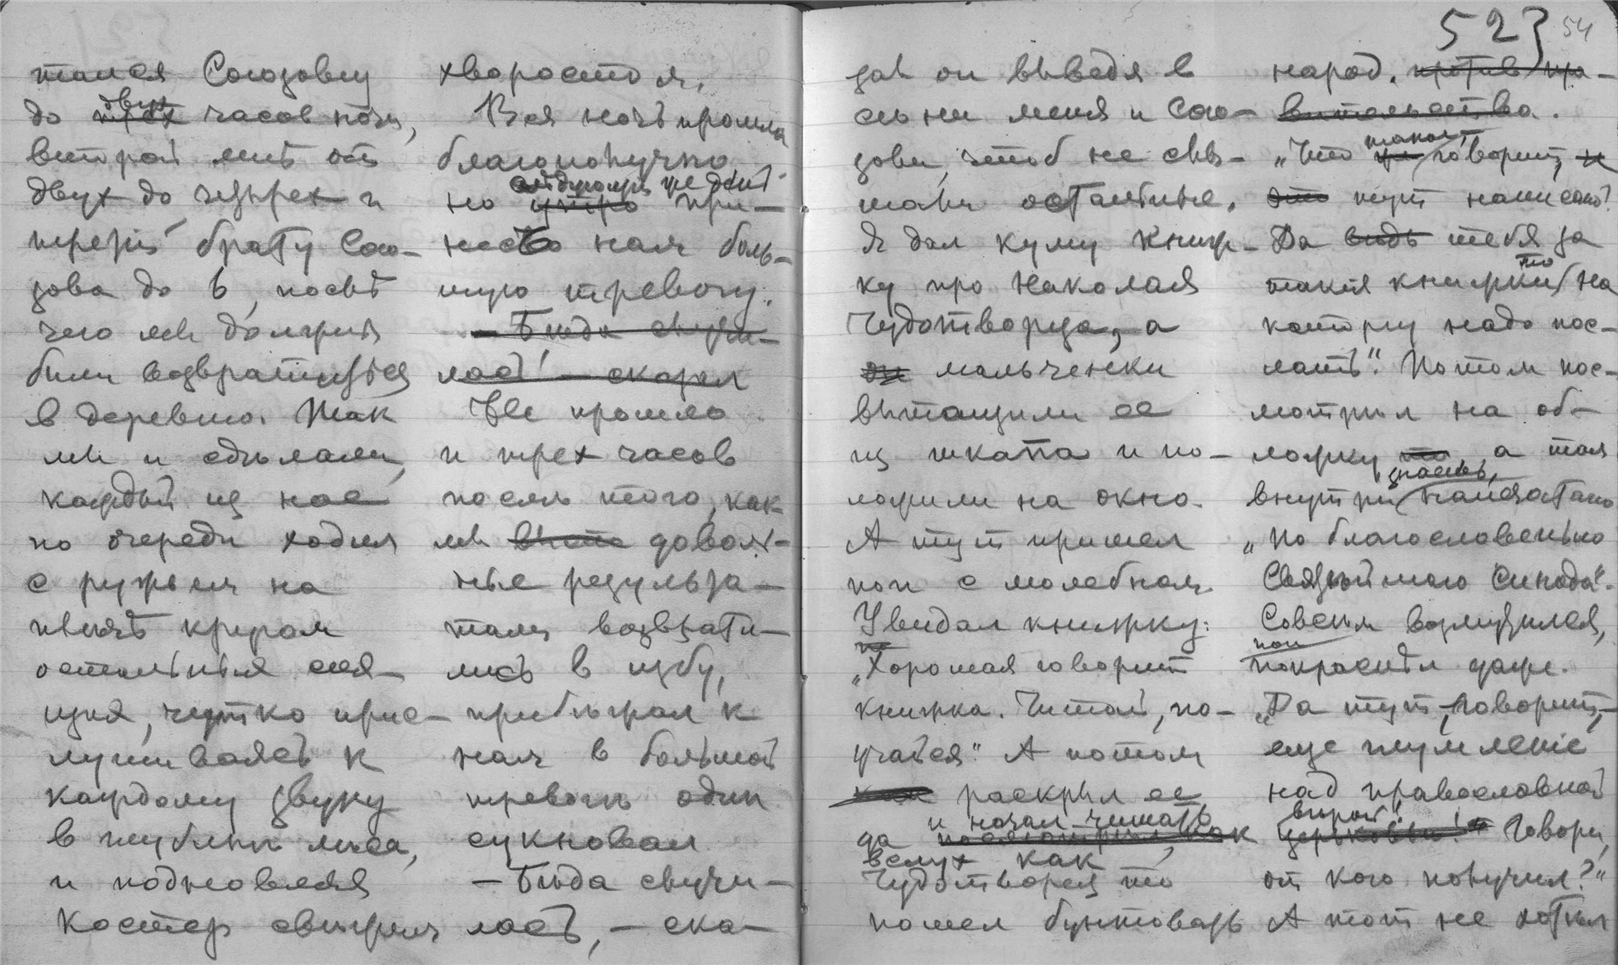 523 54
тался Союзову
до трех двух часов ночи,
второй мне от
двух до четрех и
третій брату Сою-
зова до 6, послѣ
чего мы должны
были возвратиться
в деревню. Так
мы и сдѣлали,
каждый из нас
по очереди ходил
с ружьем на
плечѣ кругом
остальныя
ция, чутко прис-
лушиваясь к
каждому звуку
в глубинѣ лѣса,
и подновляя
костер свѣжим
хворостом.
Вся ночь прошла
благополучно
но утро слѣдующій же день при-
несло нам боль-
шую тревогу.
— Бѣда случи-
лась! — сказал
Не прошло
и трех часов
послѣ того, как
мы доволь-
ные результа-
том, возврати-
лись в избу,
прибѣжал к
нам в большой
тревогѣ один
сукновал
— Бѣда случи-
лась, — ска-
зал он выведя в
сѣни меня и Сою-
зова, чтоб не слы-
шали остальные.
Я дал куму книж-
ку про Николая
Чудотворца, а
мальченки
вытащили ее
из шкапа и по-
ложили на окно.
А тут пришел
поп с молебном.
Увидал книжку:
„Хорошая говорит
книжка. Читай, по-
учайся." А потом
раскрыл ее
да и начал читать
вслух как
Чудотворец то
пошел бунтовать
народ. против пра-
вительства.
„Что такой говорит,
это тут написано?
Да тебя за
такія книжки то на
каторгу надо пос-
лать". Потом пос-
мотрѣл на об-
ложку а там
внутри напечатано
„По благословенью
Святѣйшаго Синода".
Совсѣм возмутился,
поп покраснѣл даже.
„Да тут, говорит, —
еще глумленіе
над православной
вѣрой! церковью! Говори,
от кого получил?"
А тот не хотѣл